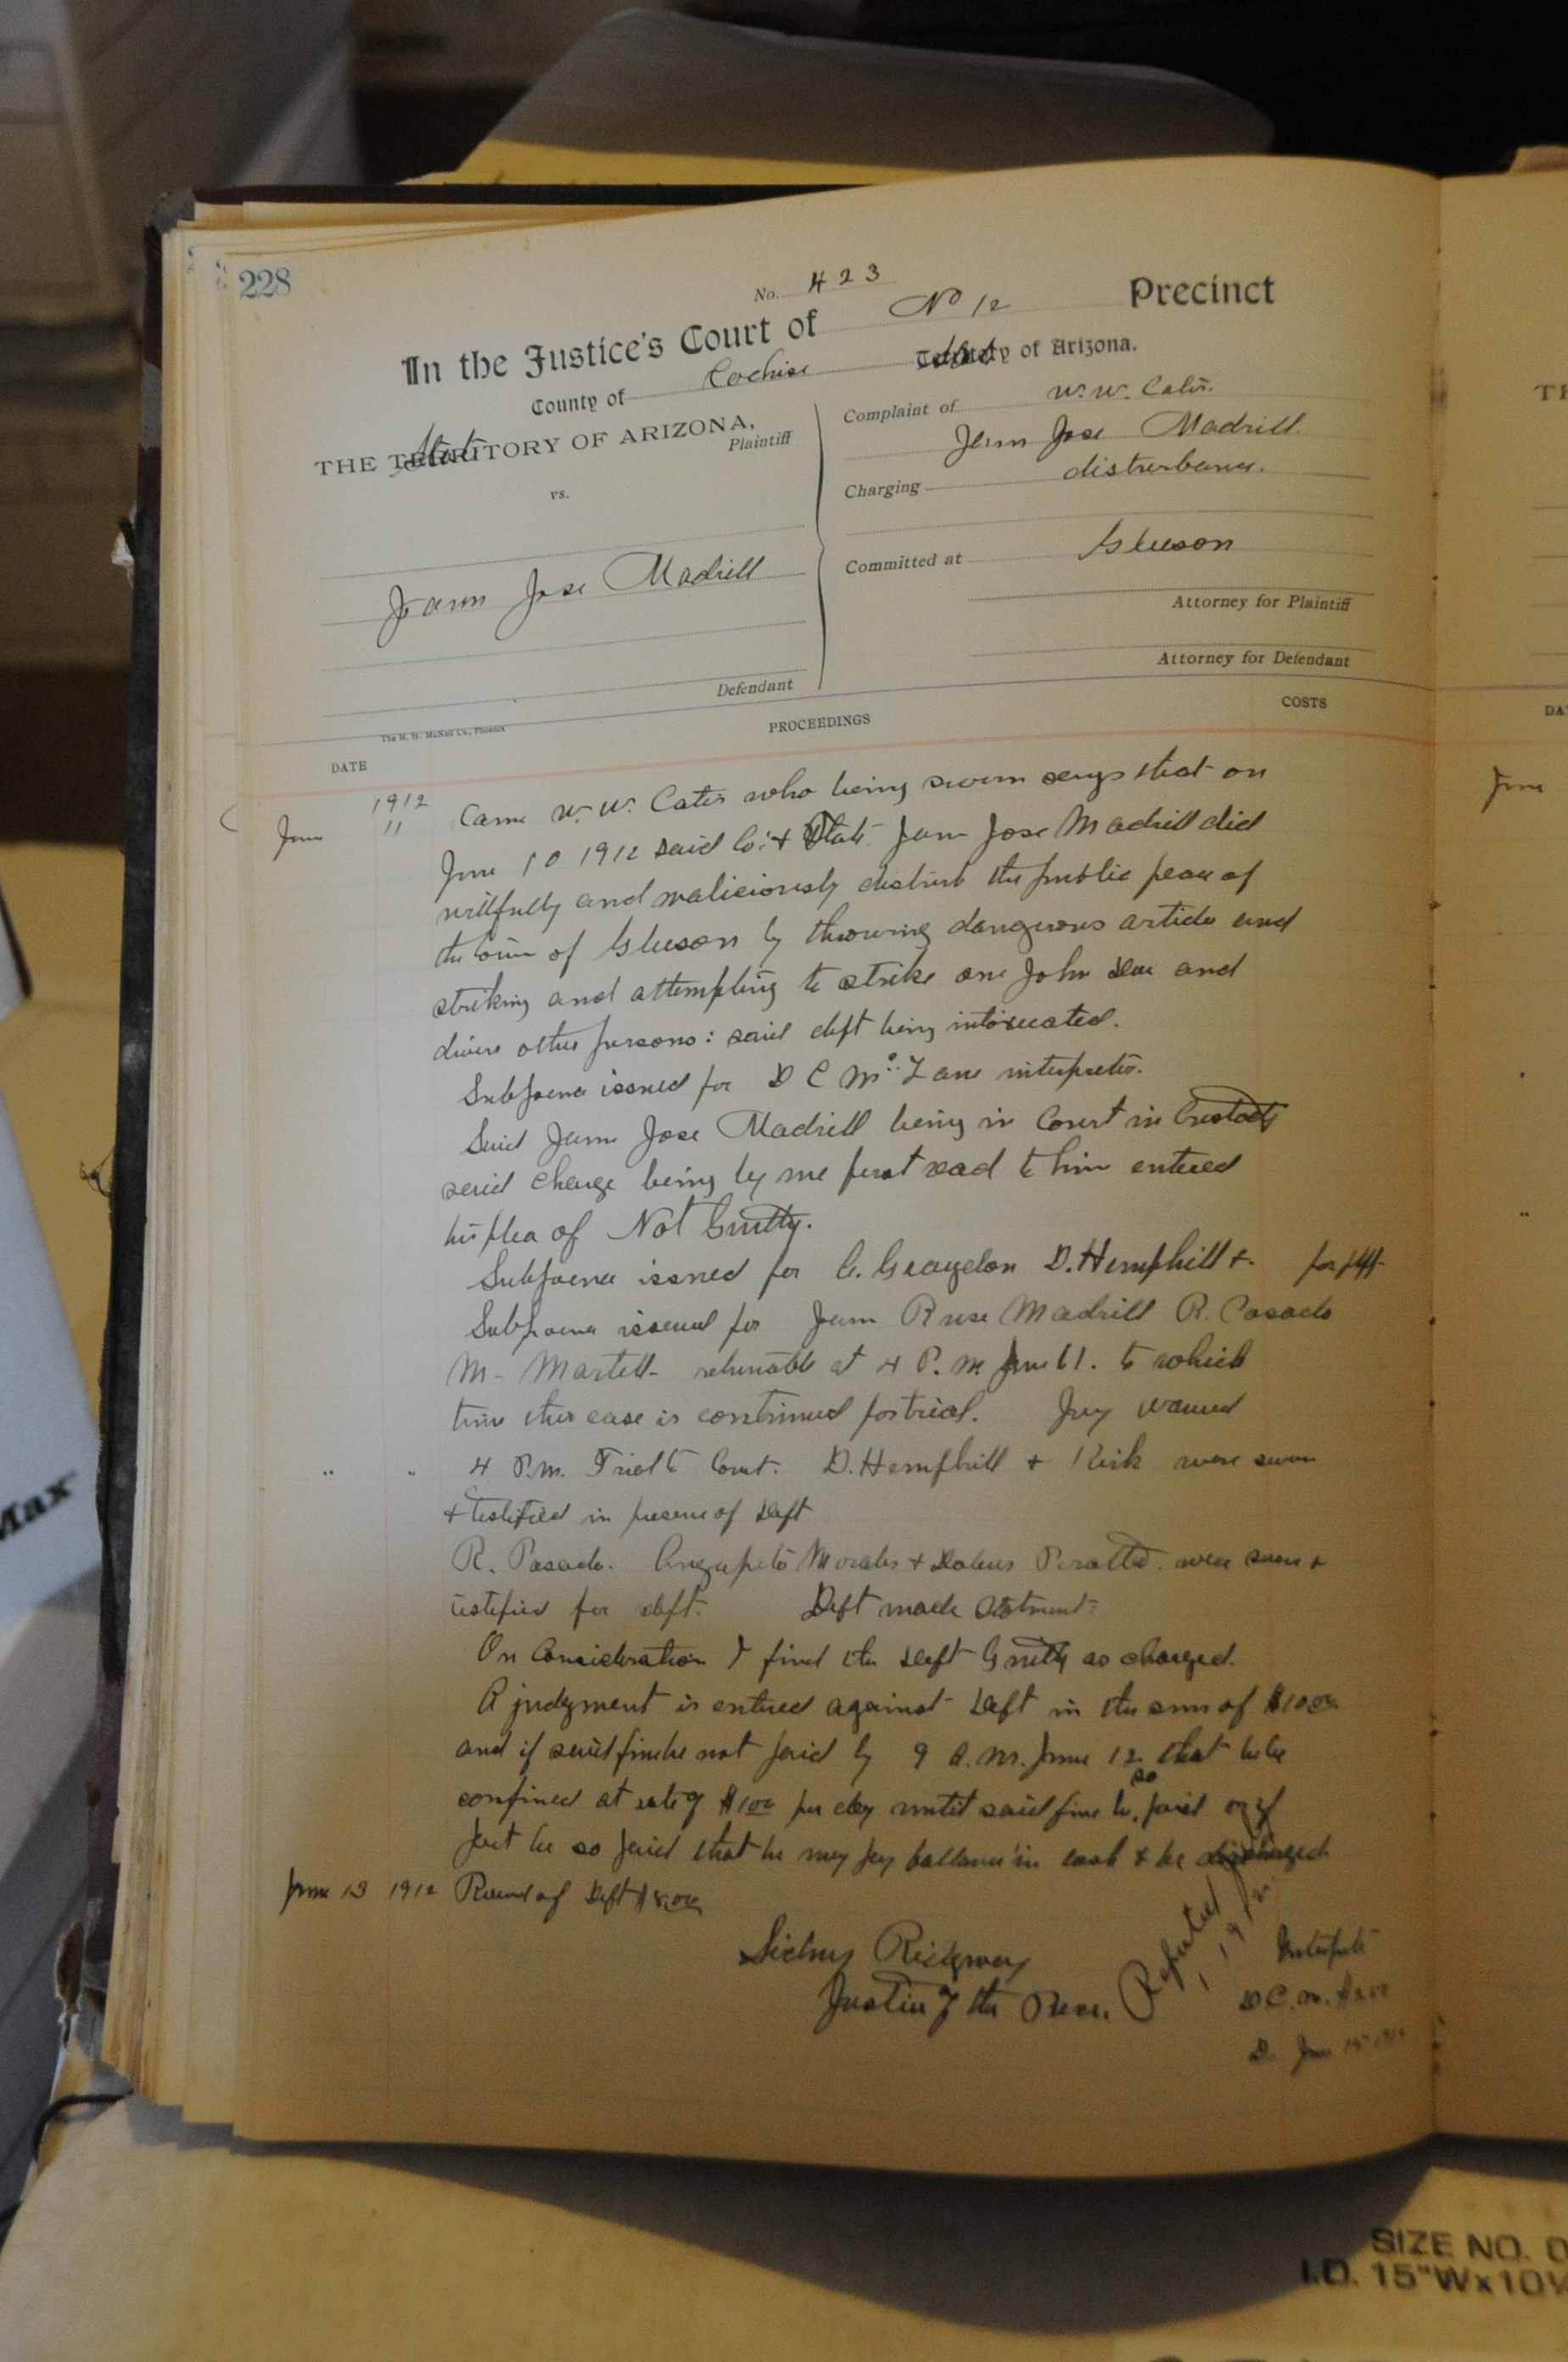 228
No. 423
In the Justice's Court of No 12 Precinct
County of Cochise State of Arizona.
THE State OF ARIZONA,
Plaintiff
vs.
Juan Jose Madrill
Defendant
Complaint of W. W. Cates.
Juan Jose Madrill
Charging disturbance.
Committed at Gleeson
Attorney for Plaintiff
Attorney for Defendant
The H. H. McNeil Co., Phoenix
DATE PROCEEDINGS COSTS
1912
June 11 Came W. W. Cates who being sworn says that on
June 10 1912 said Co. & State Juan Jose Madrill did
willfully and maliciously disturb the public peace of
the town of Gleeson by throwing dangerous article and
striking and attempting to strike one John Doe and
divers other persons: said deft being intoxicated.
Subpoena issued for D C McLane interpreter.
Said Juan Jose Madrill being in Court in Custody
said charge being by me first read to him entered
his plea of Not Guilty.
Subpoena issued for G. Graydon D. Hemphill + for plff.
Subpoena issued for Juan Ruse Madrill R. Casado
M- Martell- returnable at 4 P.M. June 11. to which
time this case is continued for trial. Jury waived
" " 4 P.M. Trial to Court. D. Hemphill + Kirk were sworn
+ testified in presence of Deft
R. Pasado. Morales + Peralta. were sworn +
testified for deft. Deft made Statment:
On Consideration I find the Deft Guilty as charged.
A judgment is entered against Deft in the sum of $10.00
and if said fine be not paid by 9 A.M. June 12 that he be
confined at rate of $1.00 per day until said fine be so paid or if
part be so paid that he may pay ballance in cash & be discharged
June 13 1912 Received of Deft $8.00
Sidney Ridgway
Justice of the Peace.
Reported
Interpreter
D C. M. $2.00